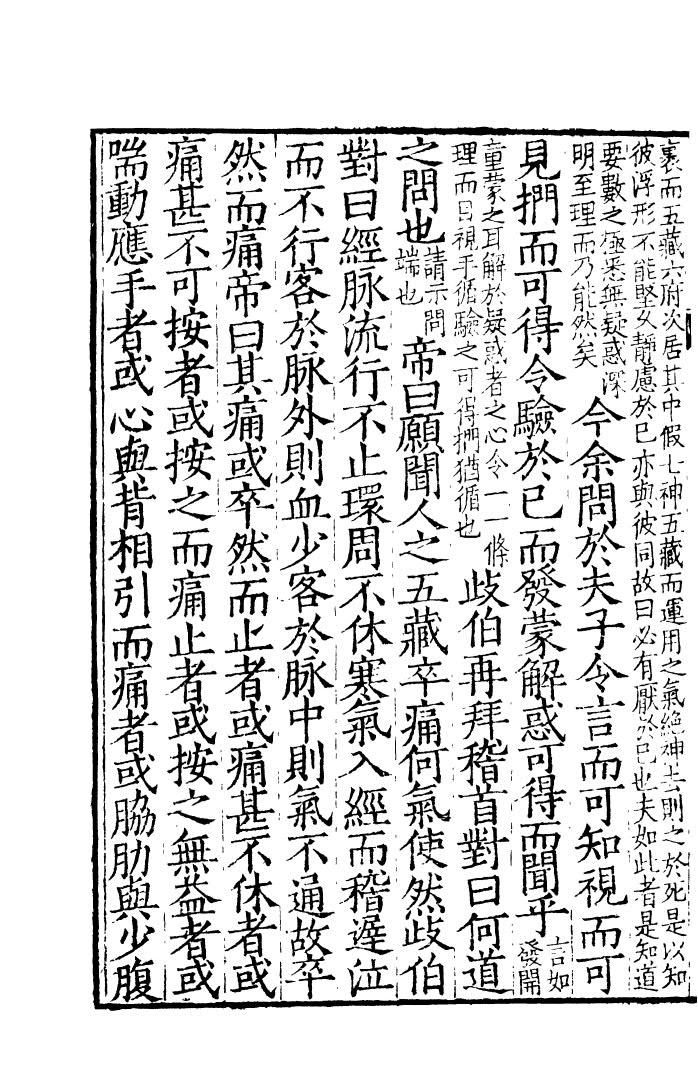 裹而五藏六府次居其中假七神五藏而運用之氣絶神去則之於死是以知
彼浮形不能堅久靜慮於已亦與彼同故曰必有厭於已也夫如此者是知道
要數之極悉無疑惑深
明至理而乃能然矣
今余問於夫子令言而可知視而可
見捫而可得令驗於已而發蒙解惑可得而聞乎
言如
發開
童蒙之耳解於疑惑者之心令一一條
理而目視手循驗之可得捫猶循也
歧伯再拜稽首對曰何道
之問也
請示問
端也
帝曰願聞人之五藏卒痛何氣使然歧伯
對曰經脉流行不止環周不休寒氣入經而稽遲泣
而不行客於脉外則血少客於脉中則氣不通故卒
然而痛帝曰其痛或卒然而止者或痛甚不休者或
痛甚不可按者或按之而痛止者或按之無益者或
喘動應手者或心與背相引而痛者或脇肋與少腹